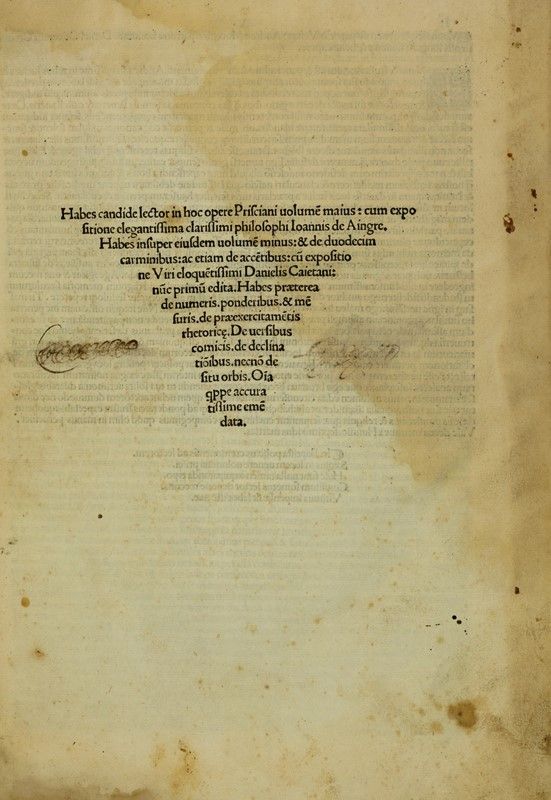 Habes candide lector in hoc opere Prisciani uolumē maius: cum expo
sitione elegantissima clarissimi philosophi Ioannis de Aingre.
Habes insuper eiusdem uolumē minus: & de duodecim
carminibus: ac etiam de accētibus: cū expositio
ne Viri eloquētissimi Danielis Caietani:
nūc primū edita. Habes præterea
de numeris. ponderibus. & mē
suris. de præexercitamētis
rhetoricę. De uersibus
comicis. de declina
tiōibus. necnō de
situ orbis. Oīa
qppe accura
tissime emē
data.